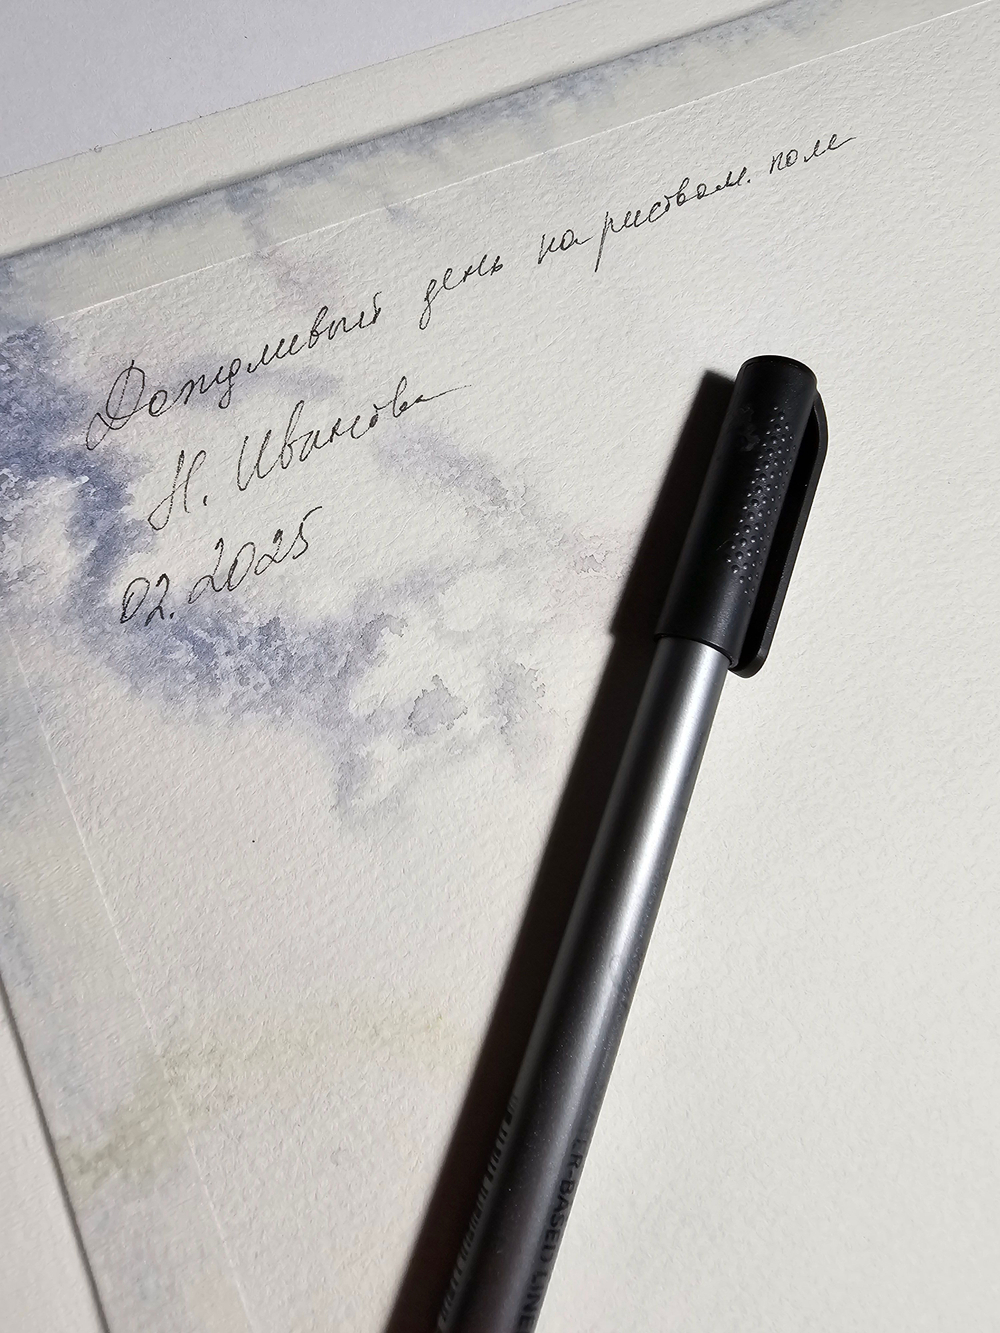 Дождливый день на рисовом поле
Н. Иванова
02.2025
-BASED LINE